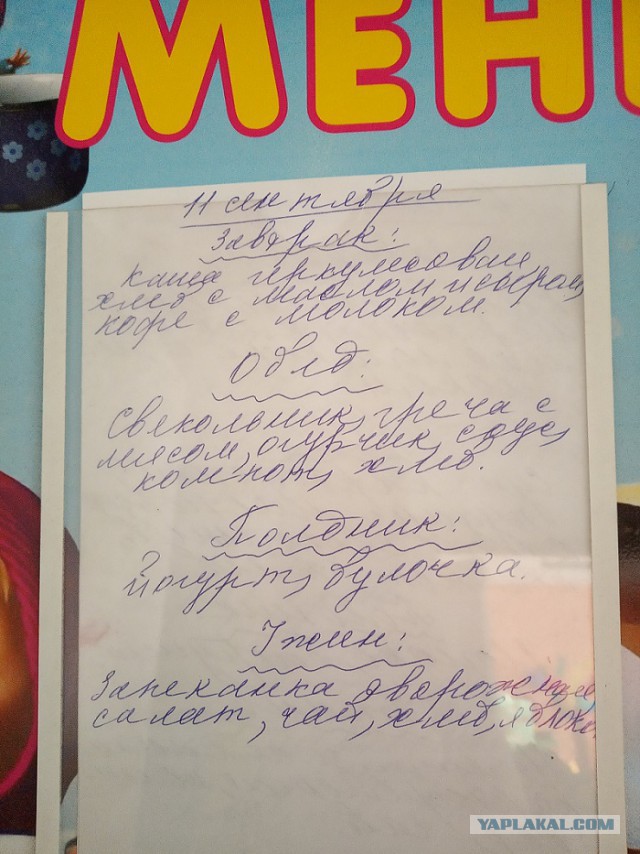 МЕНЮ
11 сентября
Завтрак:
каша геркулесовая,
хлеб с маслом и сыром,
кофе с молоком.
Обед:
Свекольник, греча с
мясом, огурчик, соус,
компот, хлеб.
Полдник:
йогурт, булочка.
Ужин:
Запеканка творожная,
салат, чай, хлеб, яблоко.
YAPLAKAL.COM